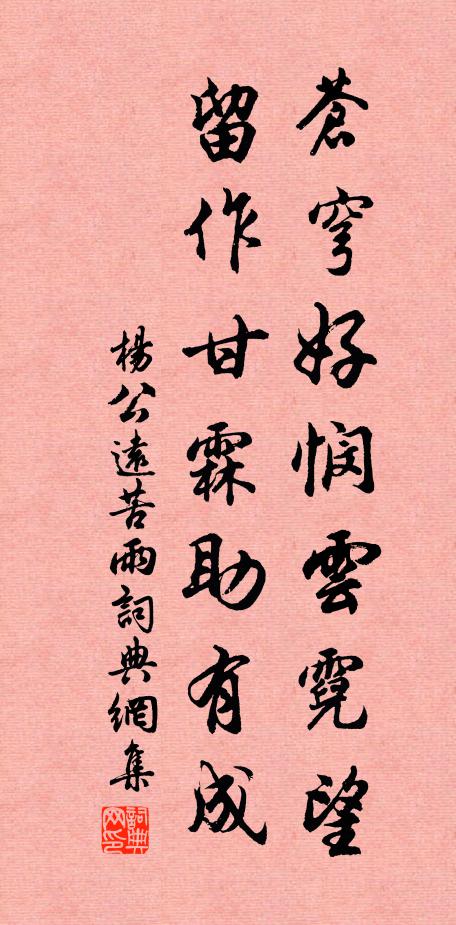 蒼穹好憫雲霓望
留作甘霖助有成
楊公遠苦雨詞典網集
詞典网印